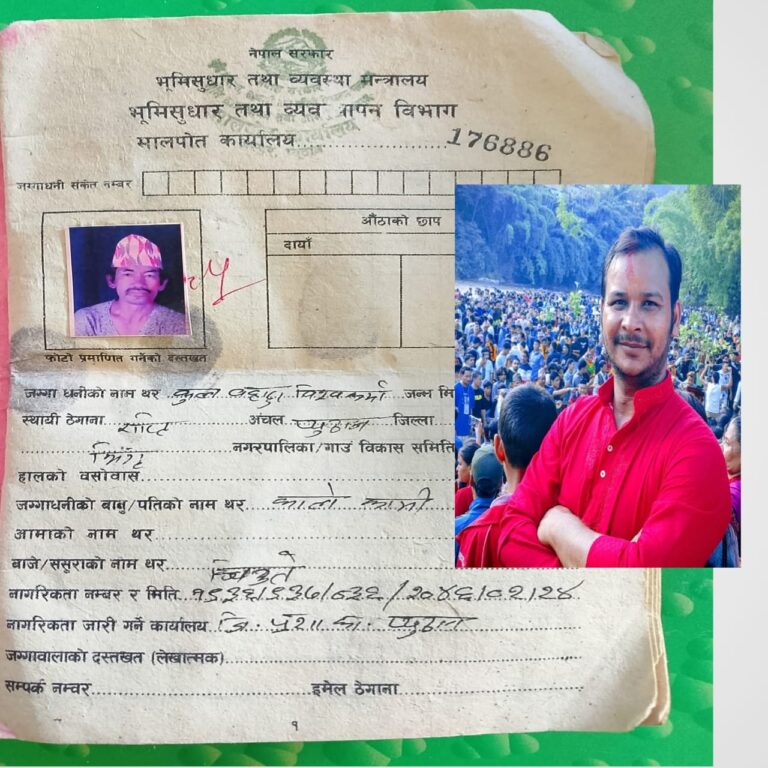 नेपाल सरकार
भूमिसुधार तथा व्यवस्था मन्त्रालय
भूमिसुधार तथा व्यव पन विभाग
मालपोत कार्यालय 176886
जग्गाधनी संकेत नम्बर
औंठाको छाप
दायाँ
फोटो प्रमाणित गर्नेको दस्तखत
जग्गा धनीको नाम थर विश्वकर्मा जन्म मि
स्थायी ठेगाना राप्ति अंचल प्युठान जिल्ला
नगरपालिका/गाउं विकास समिति
हालको वसोवास
जग्गाधनीको बाबु/पतिको नाम थर कामी
आमाको नाम थर
बाजे/ससुराको नाम थर
नागरिकता नम्बर र मिति
नागरिकता जारी गर्ने कार्यालय जि. प्रशा का. प्युठान
जग्गावालाको दस्तखत (लेखात्मक)
सम्पर्क नम्वर इमेल ठेगाना
१